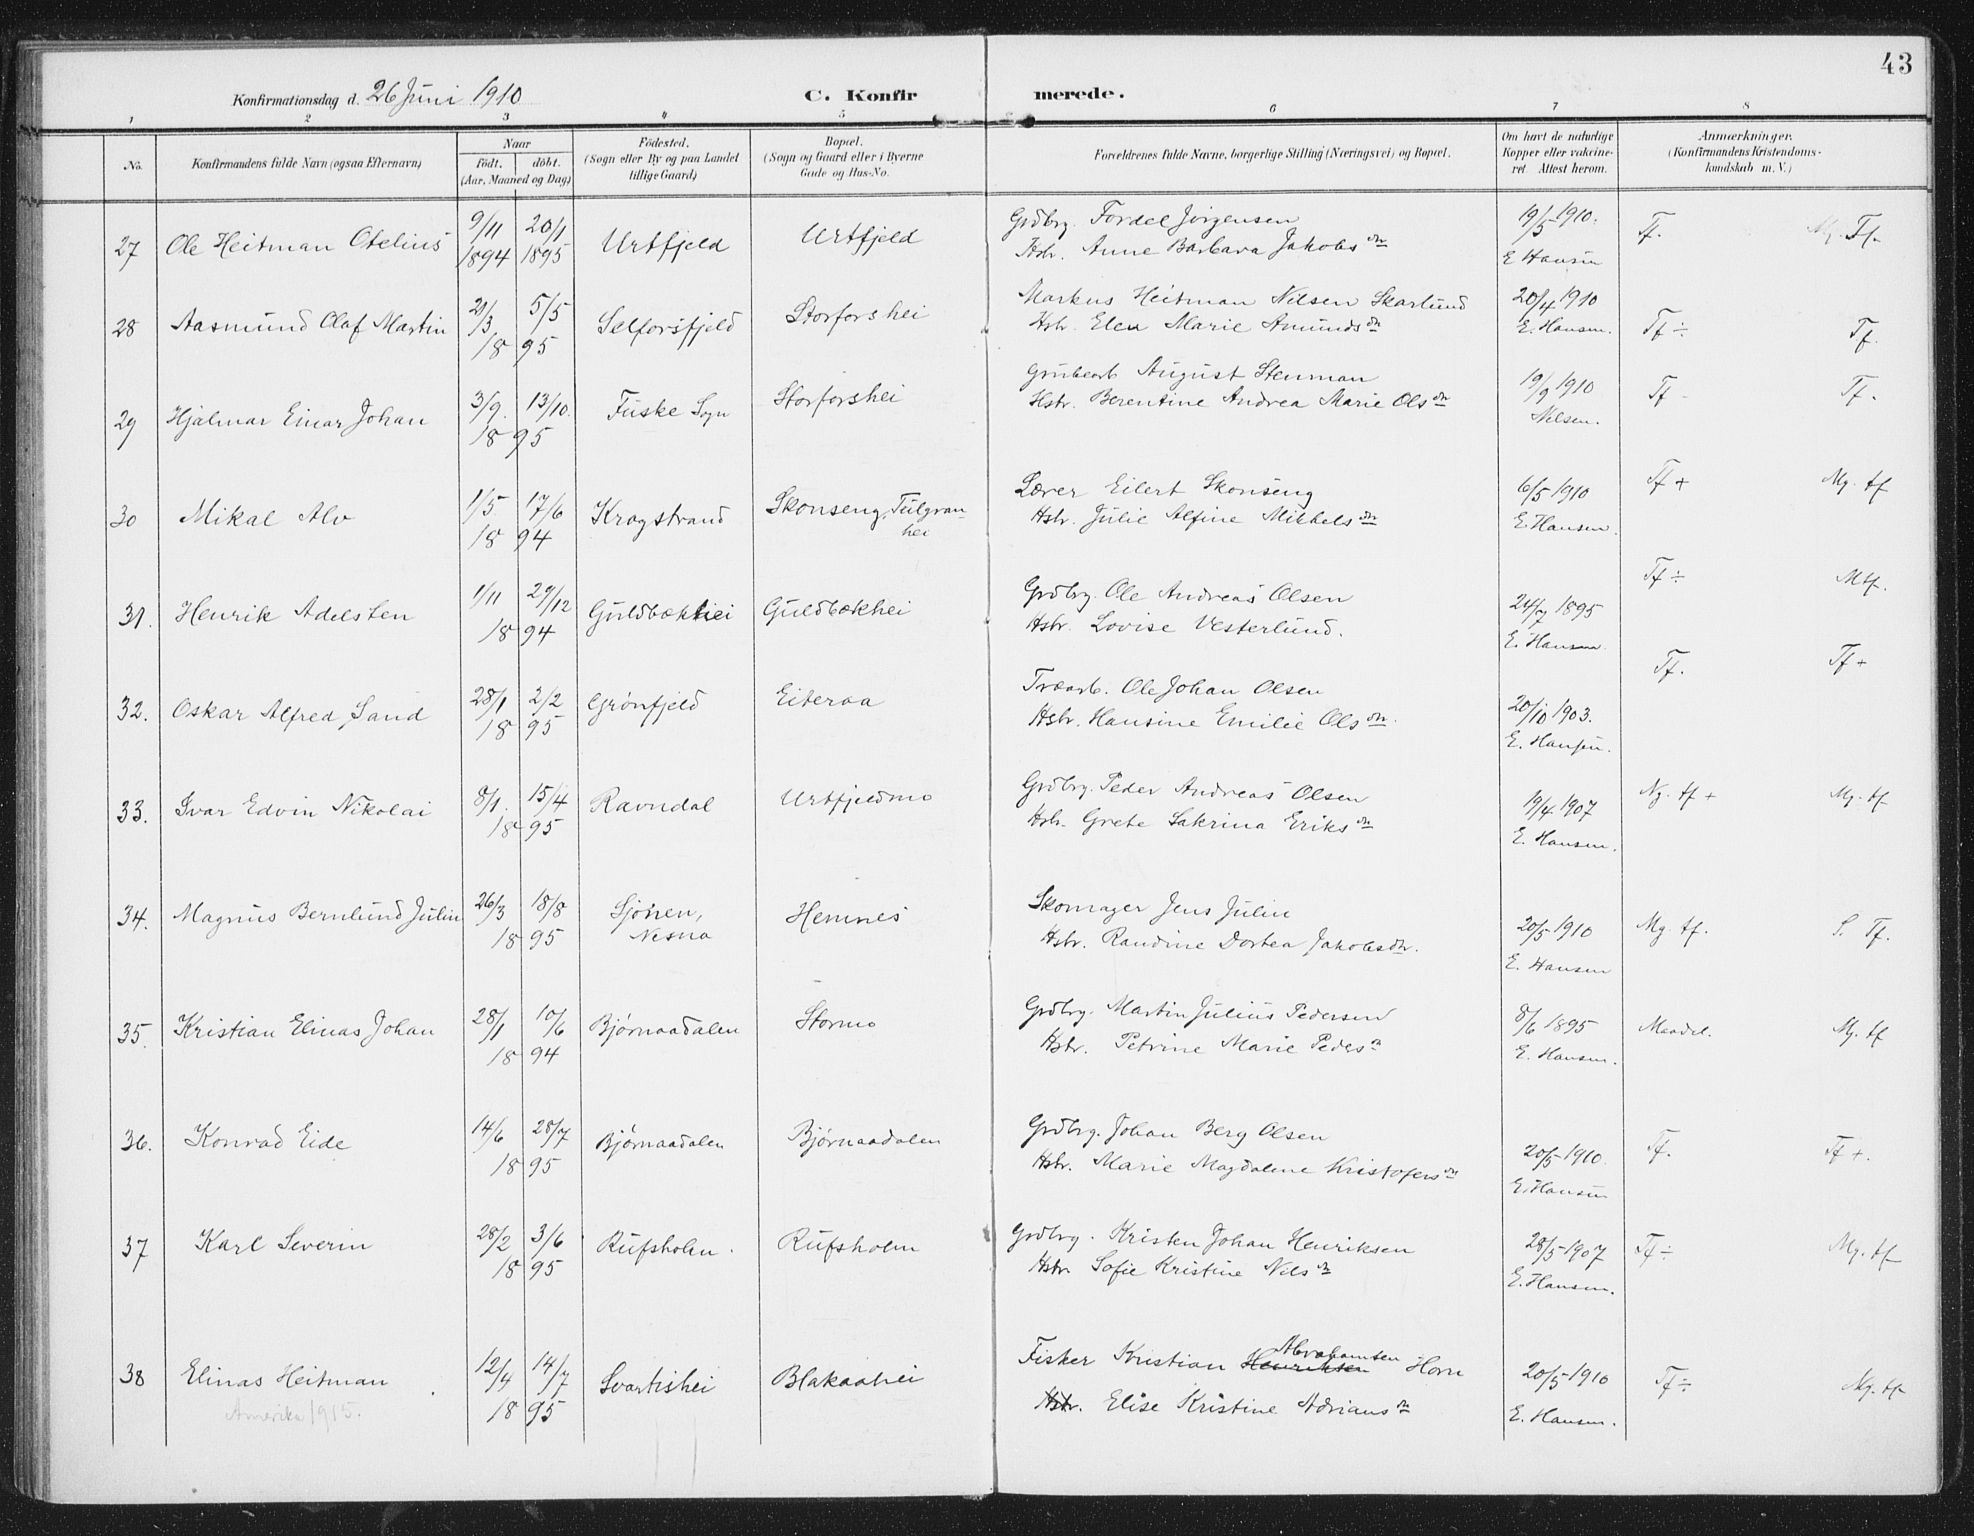 43
Konfirmationsdag d. 26 Juni 1910
C. Konfirmerede.
1 2 3 4 5 6 7 8
No.
Konfirmandens fulde Navn (ogsaa Efternavn)
Naar
födt. döbt.
(Aar, Maaned og Dag)
Födested.
(Sogn eller By og paa Landet
tillige Gaard)
Bopæl.
(Sogn og Gaard eller i Byerne
Gade og Hus-No.
Forældrenes fulde Navne, borgerlige Stilling (Næringsvei) og Bopæl.
Om havt de naturlige
Kopper eller vakcine-
ret. Attest herom.
Anmærkninger.
(Konfirmandens Kristendoms-
kundskab m. V.)
27 Ole Heitman Otelius 9/11 1894 20/1 1895 Urtfjeld Urtfjeld
Grdbrg. Fordel Jørgensen
Hstr. Anne Barbara Jakobsdn
19/5 1910.
E Hansen
Tf. Mg. Tf.
28 Aasmund Olaf Martin 21/3 5/5 18 95 Selforsfjeld Storforshei
Markus Heitman Nilsen Skarlund
Hstr. Elen Marie Amundsdn
20/4 1910
E. Hansen.
Tf ÷ Tf.
29 Hjalmar Einar Johan 3/9. 13/10. 18 95 Fuske Sogn Storforshei
Grubearb August Stenman
Hstr. Berentine Andrea Marie Olsdn
19/9 1910
Nilsen.
Tf - Tf.
30 Mikal Alv 1/5 17/6 18 94 Krogstrand Skonseng, Tulgran-
hei
Lærer Eilert Skonseng
Hstr. Julie Alfine Mikkelsdn
6/5 1910
E. Hansen.
Tf + Mg. tf
31. Henrik Adelsten 1/11 29/12 18 94 Guldbækhei Guldbækhei
Grdbrg. Ole Andreas Olsen
Hstr. Lovise Vesterlund.
24/7 1895
E. Hansen.
Tf ÷ Mtf.
32. Oskar Alfred Sand 28/1 2/2 18 95 Grønfjeld Eiteraa
Træarb. Ole Johan Olsen
Hstr. Hansine Emilie Olsdn.
20/10 1903.
E. Hansen.
Tf. Tf +
33. Ivar Edvin Nikolai 8/1. 15/4 18 95 Ravndal Urtfjeldmo
Grdbrg. Peder Andreas Olsen
Hstr. Grete Sakrina Eriksdn
19/4 1907
E. Hansen.
Ng. tf + Mg. tf
34. Magnus Bernlund Julin 26/3 18/8 18 95 Sjonen,
Nesna Hemnes
Skomager Jens Julin
Hstr. Randine Dortea Jakobsdn.
20/5 1910
E. Hansen
Mg. tf. S. Tf.
35. Kristian Elinas Johan 28/1 10/6 18 94 Bjørnaadalen Stormo
Grdbrg. Martin Julius Pedersen
Hstr. Petrine Marie Pedersn
8/6 1895
E. Hansen.
Maadel. Mg. tf
36. Konrad Eide 14/6 28/7 18 95 Bjørnaadalen Bjørnaadalen
Grdbrg. Johan Berg Olsen
Hstr. Marie Magdalene Kristofersdn
20/5 1910.
E. Hansen
Tf. Tf +.
37 Karl Severin 28/2 3/6 18 95 Rufsholm. Rufsholm
Grdbrg. Kristen Johan Henriksen
Hstr. Sofie Kristine Nilsdn
28/5 1907
E. Hansen.
Tf ÷ Mg. tf
38 Elinas Heitman 12/4 14/7 18 95 Svartishei Blakaahei
Amerika 1915.
Fisker Kristian Henriksen Abrahamsen Horn
Hstr. Elise Kristine Adriansdn
20/5 1910
E. Hansen.
Tf ÷ Mg. tf